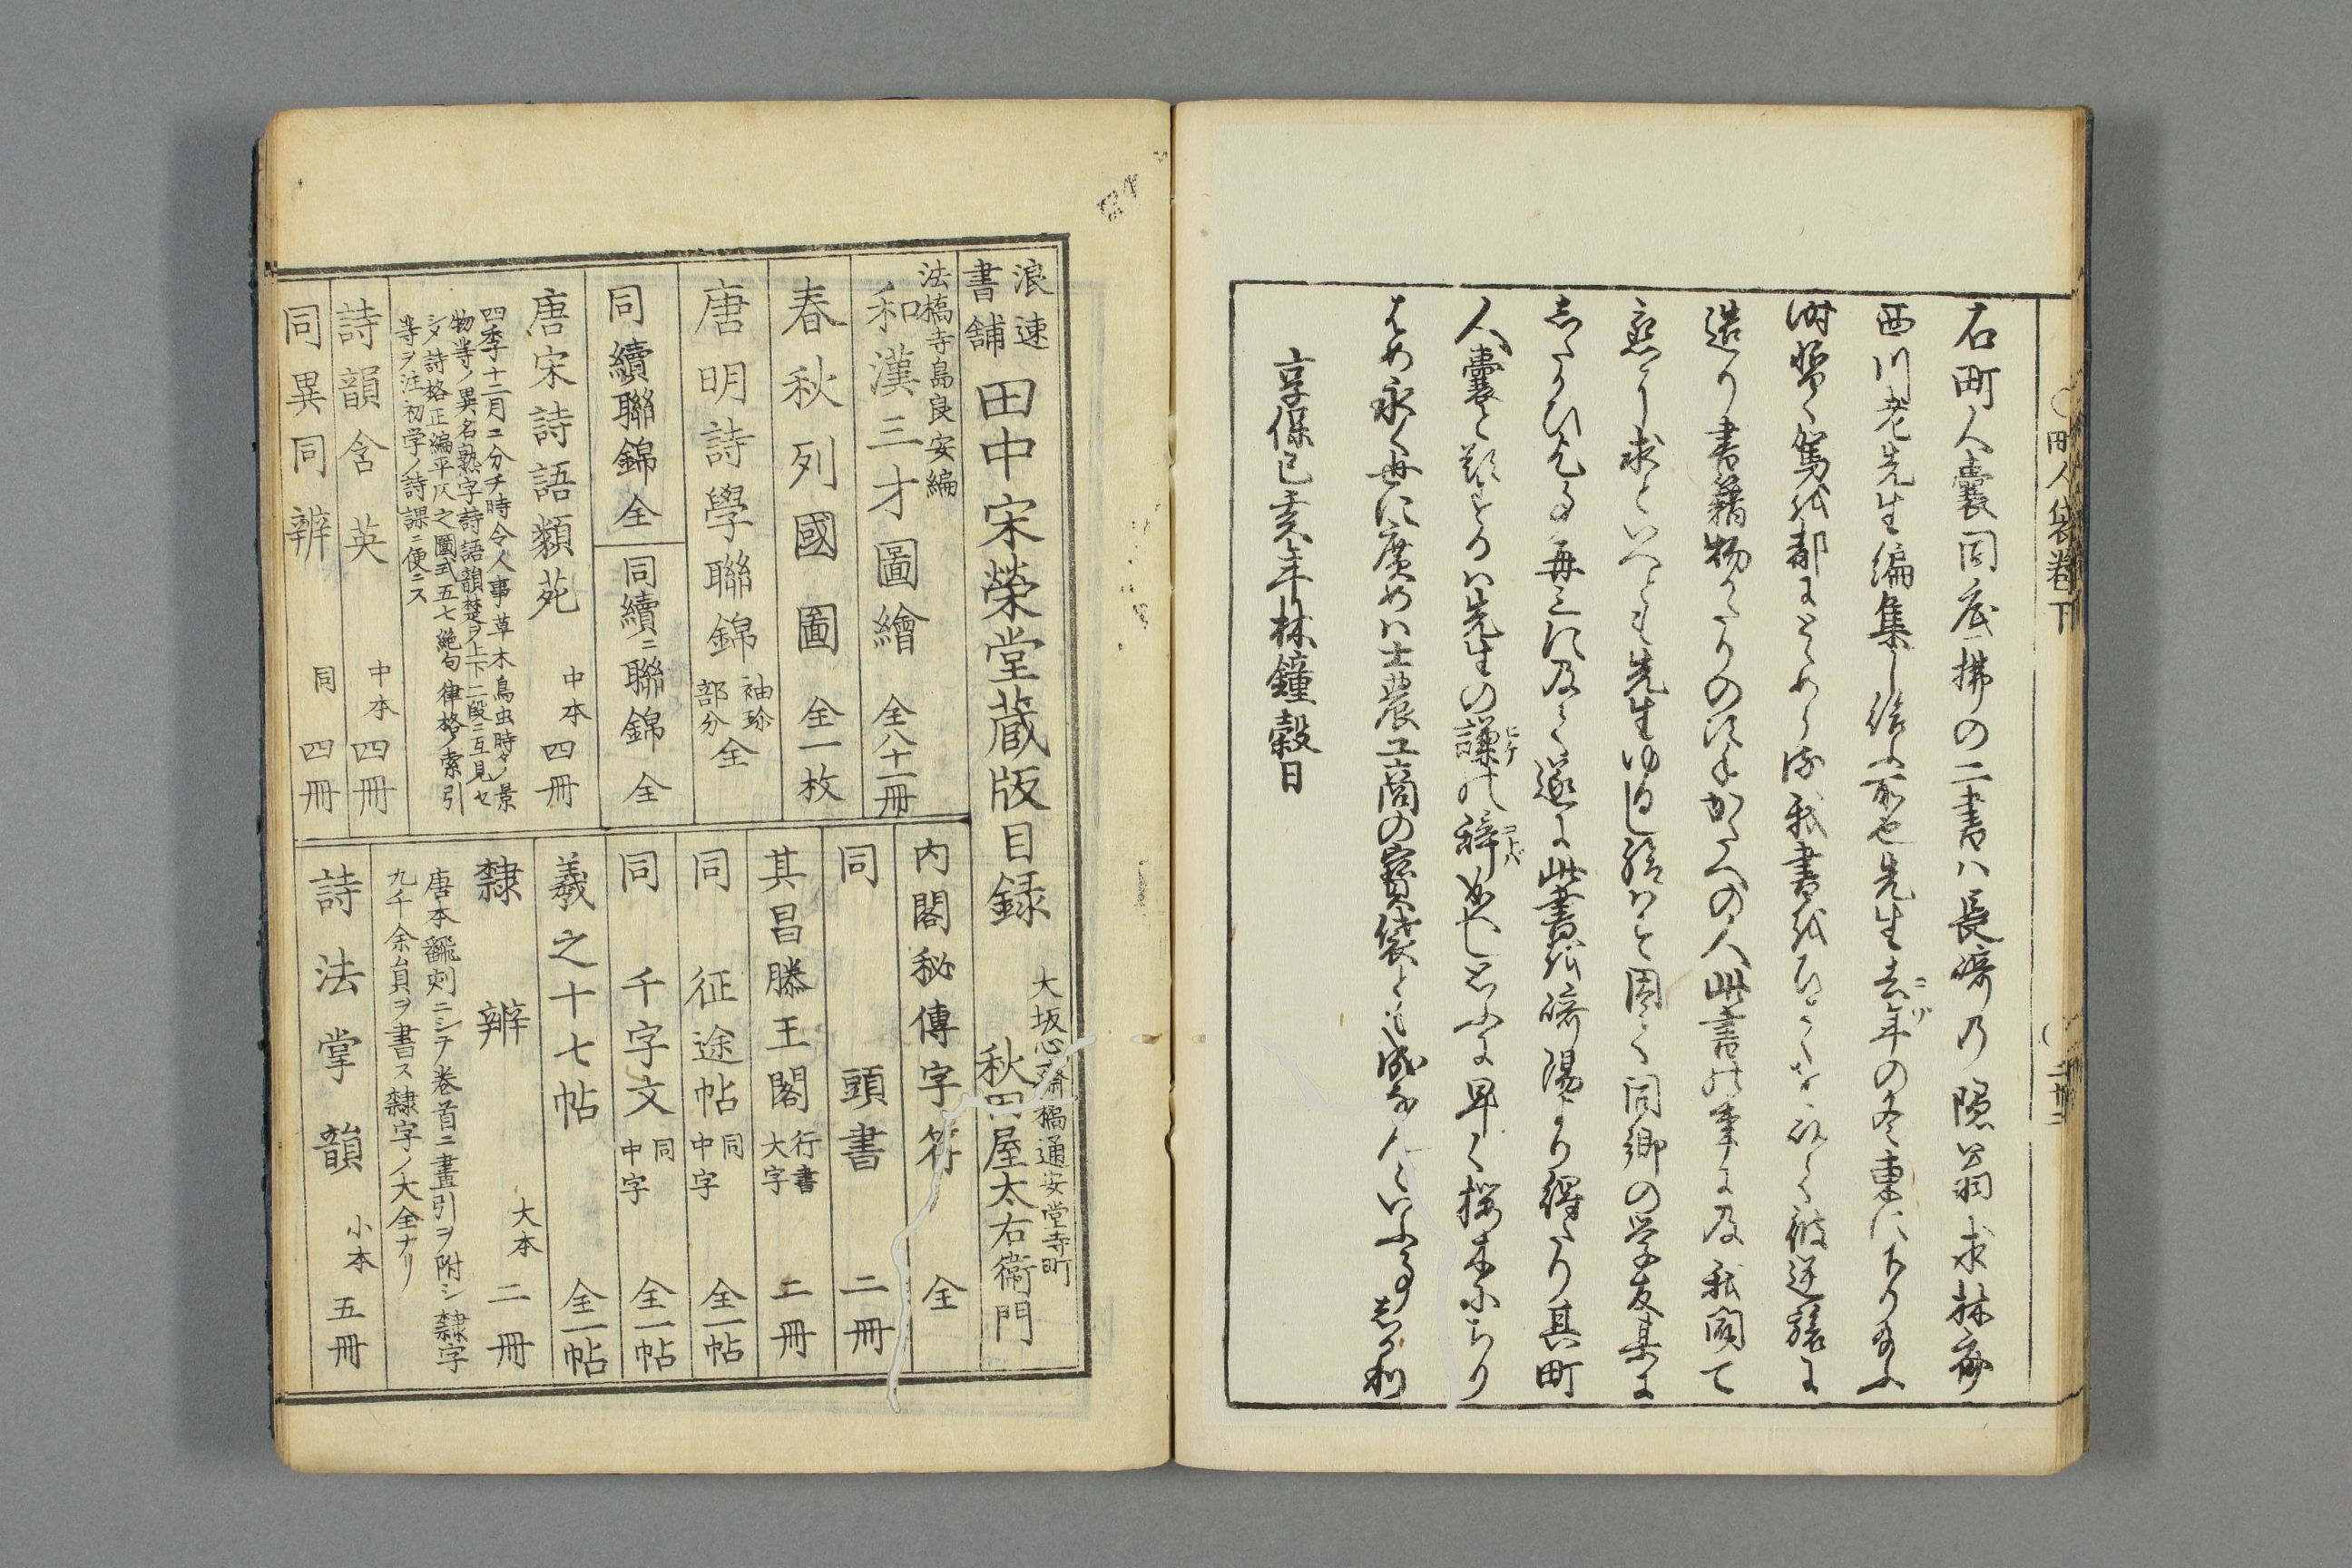 町人袋巻下
三十三
右町人嚢同底拂の二書ハ長崎乃隠翁求林齋
西川老先生編集し給ふ所也先生去年の冬東に下り給ふ
コゾ
時暫く駕を都にとゞめらる我書を
造り書籍物かたりのに人此書の事に及我聞て
懇に求といへども先生ゆるし給はず固く同郷の学友某に
したひ乞る事再三に及て遂に此書を崎陽より得たり其町
人嚢と題せるハ先生の謙の辞なりと早く桜木にちり
ヒゲ
コトバ
はめ永く世に廣めハ士農工商の寳袋とも成なんといふ事しか利
享保己亥年林鐘穀日
浪速
書舗
田中宋榮堂蔵版目録
大坂心齋橋通安堂寺町
秋田屋太右衞門
法橋寺島良安編
和漢三才圖繪 全八十一冊
春秋列國圖 全一枚
唐明詩學聯錦 袖珍部分 全
同續聯錦 全
同續二聯錦 全
唐宋詩語類苑 中本 四冊
四季十二月ニ分チ時令人事草木鳥虫時々ノ景
物等ノ異名熟字詩語韻礎ヲ上下二段ニ互見セ
シメ詩格正編平仄之圖式五七絶句律格ノ索引
等ヲ注初学ノ詩課ニ便ニス
詩韻含英 中本 四冊
同異同辨 同 四冊
内閣秘傳字符 全
同 頭書 二冊
其昌滕王閣 行書大字 二冊
同 征途帖 同中字 全一帖
同 千字文 同中字 全一帖
羲之十七帖 全一帖
隸辨 大本 二冊
唐本翻刻ニシテ巻首ニ畫引ヲ附シ隸字
九千余員ヲ書ス隸字ノ大全ナリ
詩法掌韻 小本 五冊